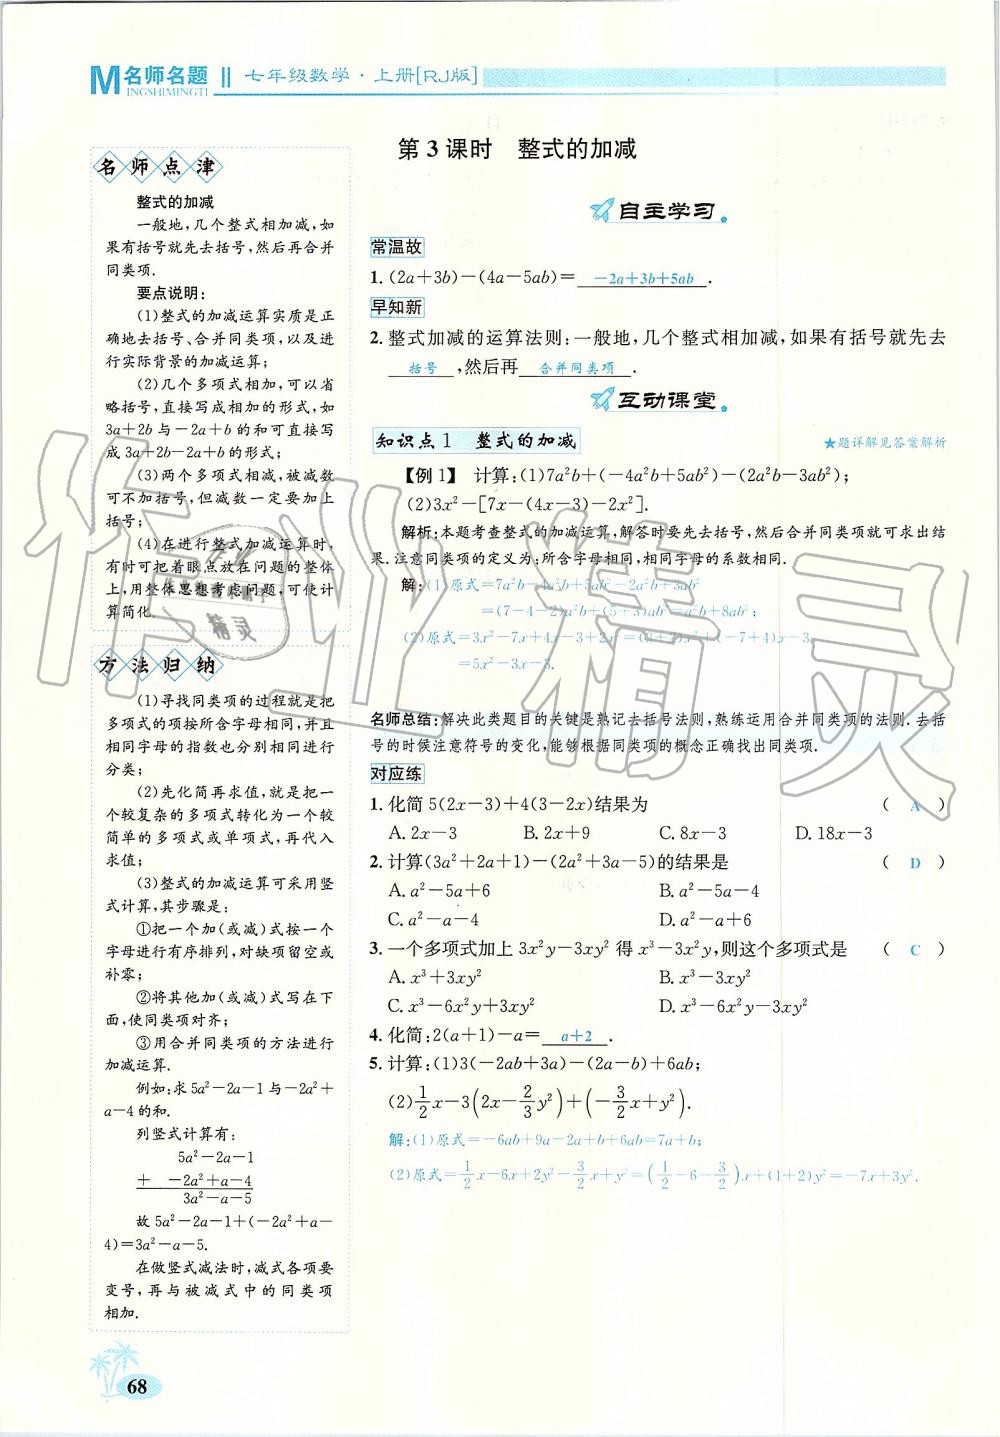 M名师名题
INGSHIMINGTI
七年级数学·上册[RJ版]
名师点津
整式的加减
一般地,几个整式相加减,如
果有括号就先去括号,然后再合并
同类项.
要点说明:
(1)整式的加减运算实质是正
确地去括号、合并同类项,以及进
行实际背景的加减运算;
(2)几个多项式相加,可以省
略括号,直接写成相加的形式,如
3a+2b与-2a+b的和可直接写
成3a+2b-2a+b的形式;
(3)两个多项式相减,被减数
可不加括号,但减数一定要加上
括号;
(4)在进行整式加减运算时,
有时可把着眼点放在问题的整体
上,用整体思想考虑问题,可使计
算简化.
方法归纳
(1)寻找同类项的过程就是把
多项式的项按所含字母相同,并且
相同字母的指数也分别相同进行
分类;
(2)先化简再求值,就是把一
个较复杂的多项式转化为一个较
简单的多项式或单项式,再代入
求值;
(3)整式的加减运算可采用竖
式计算,其步骤是:
①把一个加(或减)式按一个
字母进行有序排列,对缺项留空或
补零;
②将其他加(或减)式写在下
面,使同类项对齐;
③用合并同类项的方法进行
加减运算.
例如:求5a²-2a-1与-2a²+
a-4的和.
列竖式计算有:
5a²-2a-1
+ -2a²+a-4
3a²-a-5
故5a²-2a-1+(-2a²+a-
4)=3a²-a-5.
在做竖式减法时,减式各项要
变号,再与被减式中的同类项
相加.
第3课时 整式的加减
自主学习
常温故
1.(2a+3b)-(4a-5ab)=-2a+3b+5ab.
早知新
2.整式加减的运算法则:一般地,几个整式相加减,如果有括号就先去
括号,然后再合并同类项.
互动课堂
知识点1 整式的加减
★题详解见答案解析
【例1】 计算:(1)7a²b+(-4a²b+5ab²)-(2a²b-3ab²);
(2)3x²-[7x-(4x-3)-2x²].
解析:本题考查整式的加减运算,解答时要先去括号,然后合并同类项就可求出结
果.注意同类项的定义为:所含字母相同,相同字母的系数相同.
解:(1)原式=7a²b-4a²b+5ab²-2a²b+3ab²
=(7-4-2)a²b+(5+3)ab²=a²b+8ab²;
(2)原式=3x²-7x+4x-3+2x²=(3+2)x²+(-7+4)x-3
=5x²-3x-3.
名师总结:解决此类题目的关键是熟记去括号法则,熟练运用合并同类项的法则.去括
号的时候注意符号的变化,能够根据同类项的概念正确找出同类项.
对应练
1.化简5(2x-3)+4(3-2x)结果为 ( A )
A.2x-3 B.2x+9 C.8x-3 D.18x-3
2.计算(3a²+2a+1)-(2a²+3a-5)的结果是 ( D )
A.a²-5a+6 B.a²-5a-4
C.a²-a-4 D.a²-a+6
3.一个多项式加上3x²y-3xy²得x³-3x²y,则这个多项式是 ( C )
A.x³+3xy² B.x³-3xy²
C.x³-6x²y+3xy² D.x³-6x²y-3xy²
4.化简:2(a+1)-a=a+2.
5.计算:(1)3(-2ab+3a)-(2a-b)+6ab;
(2)1/2x-3(2x-2/3y²)+(-3/2x+y²).
解:(1)原式=-6ab+9a-2a+b+6ab=7a+b;
(2)原式=1/2x-6x+2y²-3/2x+y²=(1/2-6-3/2)x+(1+2)y²=-7x+3y².
68
作业精灵
精灵